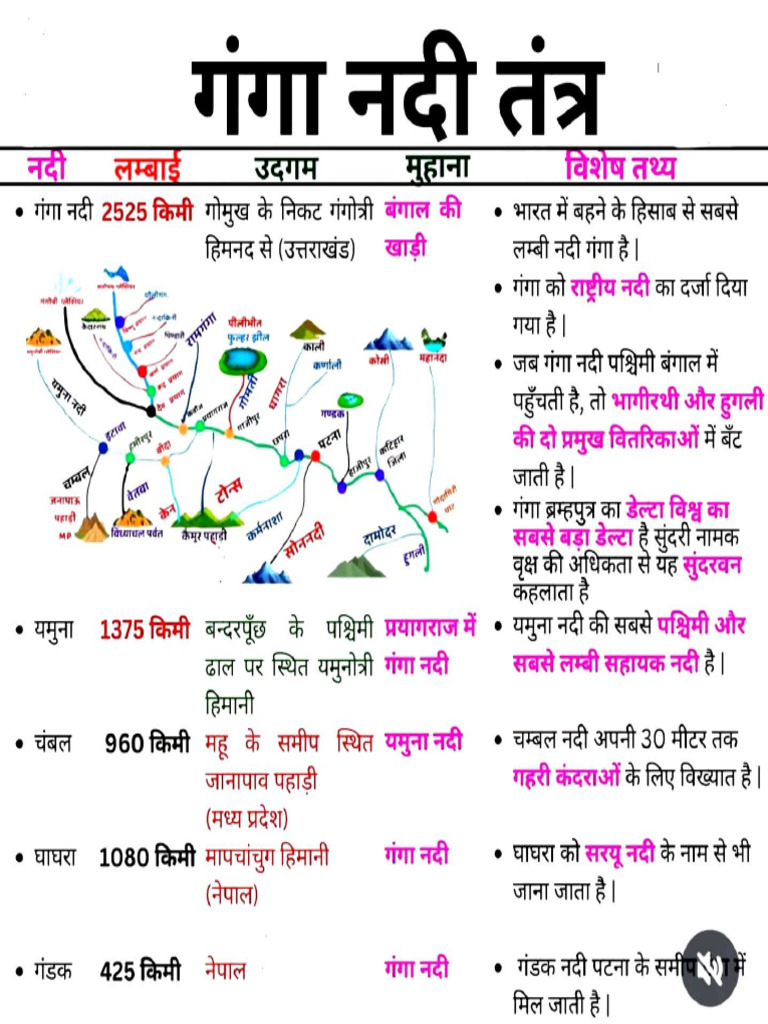 गंगा नदी तंत्र
नदी लम्बाई उदगम मुहाना विशेष तथ्य
• गंगा नदी 2525 किमी गोमुख के निकट गंगोत्री बंगाल की • भारत में बहने के हिसाब से सबसे
हिमनद से (उत्तराखंड) खाड़ी लम्बी नदी गंगा है |
• गंगा को राष्ट्रीय नदी का दर्जा दिया
गया है |
• जब गंगा नदी पश्चिमी बंगाल में
पहुँचती है, तो भागीरथी और हुगली
की दो प्रमुख वितरिकाओं में बँट
जाती है |
• गंगा ब्रम्हपुत्र का डेल्टा विश्व का
सबसे बड़ा डेल्टा है सुंदरी नामक
वृक्ष की अधिकता से यह सुंदरवन
कहलाता है
केदारनाथ
रामगंगा
पीलीभीत
फुल्हर झील
काली
कर्णाली
कोसी
महानंदा
यमुना नदी
गोमती
घागरा
गण्डक
देव प्रयाग
प्रयागराज
गाजीपुर
इटावा
हमीरपुर
छपरा
पटना
हाजीपुर
कटिहार
जिला
चम्बल
बेतवा
केन
टोन्स
कर्मनाशा
सोननदी
दामोदर
हुगली
जनापाऊ
पहाड़ी
MP
विंध्याचल पर्वत
कैमूर पहाड़ी
• यमुना 1375 किमी बन्दरपूँछ के पश्चिमी प्रयागराज में • यमुना नदी की सबसे पश्चिमी और
ढाल पर स्थित यमुनोत्री गंगा नदी सबसे लम्बी सहायक नदी है |
हिमानी
• चंबल 960 किमी महू के समीप स्थित यमुना नदी • चम्बल नदी अपनी 30 मीटर तक
जानापाव पहाड़ी गहरी कंदराओं के लिए विख्यात है |
(मध्य प्रदेश)
• घाघरा 1080 किमी मापचांचुग हिमानी गंगा नदी • घाघरा को सरयू नदी के नाम से भी
(नेपाल) जाना जाता है |
• गंडक 425 किमी नेपाल गंगा नदी • गंडक नदी पटना के समीप में
मिल जाती है |